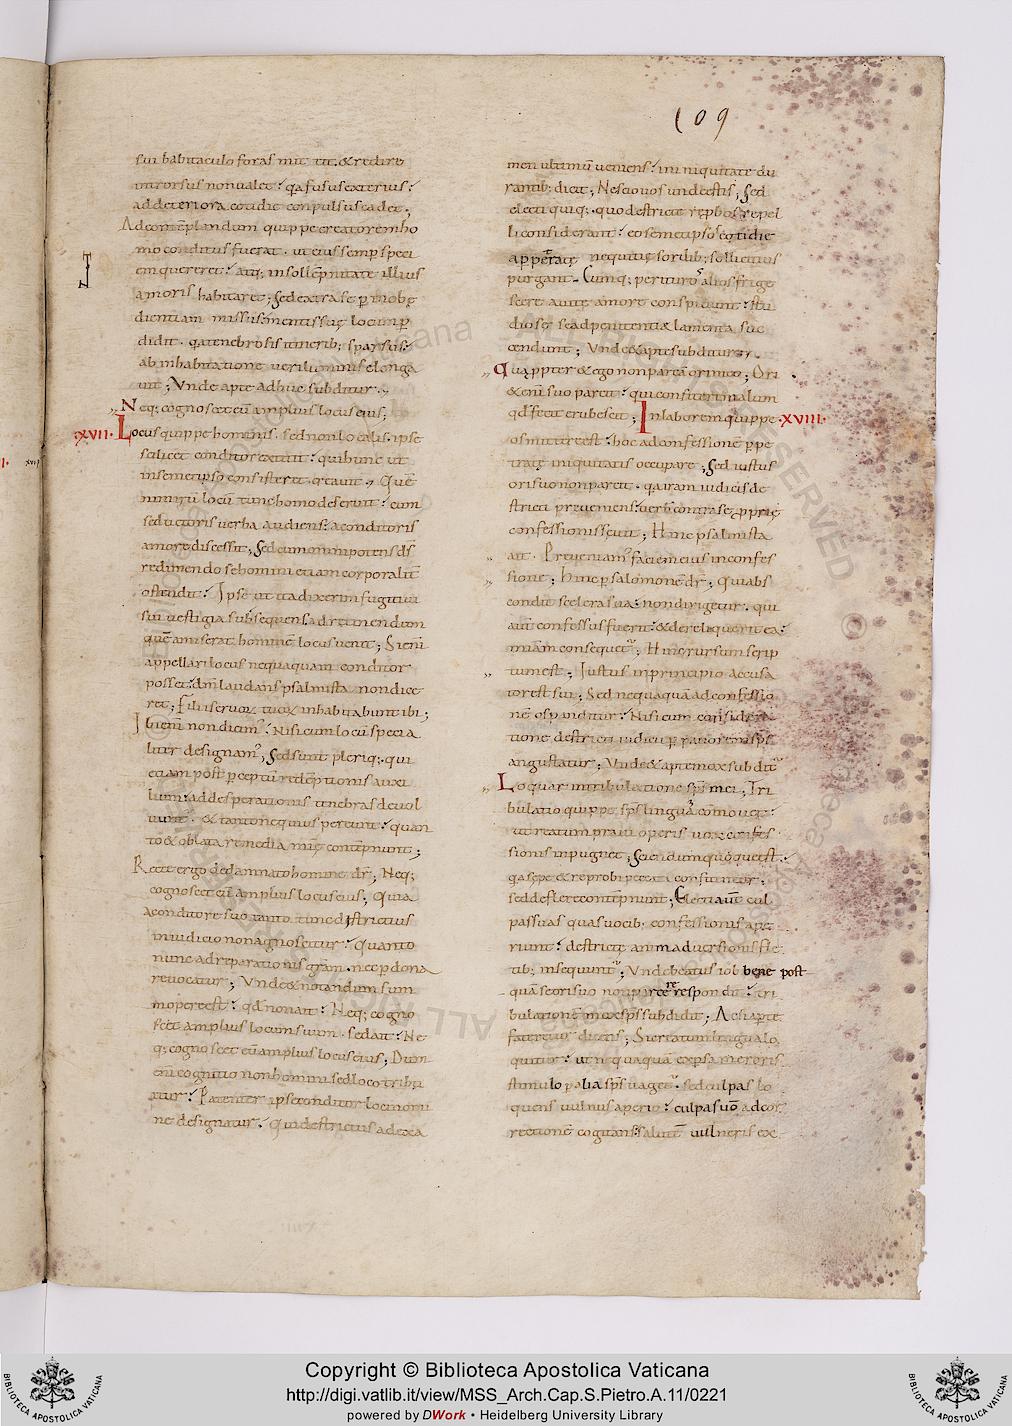 109
sui habitaculo foras mittit. & redire
introrsus non ualet; qa fusus exterius;
ad deteriora cotidie conpulsus cadet;
Ad contēplandum quippe creatorem ho
mo conditus fuerat. ut eius semp speci
em quereret; atq; in sollēpnitate illius
amoris habitaret; Sed extra se p inobę
dientiam missus; mentis suę locum p
didit. qa tenebrosis itinerib; sparsus;
ab inhabitatione ueri luminis elonga
uit; Vnde apte adhuc subditur;
Neq; cognoscet eū amplius locus eius;
XVII. Locus quippe hominis. sed non localis. ipse
scilicet conditor extitit; qui hunc ut
in semetipso consisteret. creauit; Quē
nimirū locū tunc homo deseruit; cum
seductoris uerba audiens; a conditoris
amore discessit; Sed cum omnipotens ds̄
redimendo se homini etiam corporalit̄
ostendit; Ipse ut ita dixerim fugitiui
sui uestigia subsequens, ad retinendum
quē amiserat hominē locus uenit; Si eni
appellari locus nequaquam conditor
posset; dm̄ laudans psalmista non dice
ret; Filii seruorum tuorum inhabitabunt ibi;
Ibi enim non dicim'; nisi cum locū specia
liter designam'; Sed sunt pleriq;. qui
etiam post pceptū redēptionis auxi
lium; ad desperationis tenebras deuol
uunt. & tanto nequius pereunt; quan
to & oblata remedia mīę contēpnunt;
Recte ergo de damnato homine dr̄; Neq;
cognoscet eū amplius locus eius; Quia
a conditore suo tanto tunc districtius
in iudicio non agnoscitur; quanto
nunc ad reparationis grām. nec p dona
reuocatur; Vnde & notandum sum
mopere est; qd non ait; Neq; cogno
scet amplius locum suum. sed ait; Ne
q; cognoscet eū amplius locus eius; Dum
enī cognitio non homini. sed loco tribu
itur; Patenter ipse conditor loci nomi
ne designatur; Qui destrictius ad exa
men ultimū ueniens; in iniquitate du
rantib; dicit; Nescio uos unde estis; Sed
electi quiq;. quo destricte rępbos repel
li considerant; eo semetipsos cotidie
a ppetratę nequitię sorib; sollicitius
purgant. Cumq; perituros alios frige
scere a uitę amore conspiciunt; stu
diosę se ad penitentię lamenta suc
cendunt; Vnde & apte subditur;
Quappter & ego non parcā ori meo; Ori
& eni suo parcit; qui confiteri malum
qd fecit erubescit; In laborem quippe XVIII.
os mittere est; hoc ad confessionē ppe
tratę iniquitatis occupare; Sed iustus
ori suo non parcit. qa iram iudicis de
stricti pueniens; uerbis contra se pprię
confessionis seuit; Hinc psalmista
ait. Preueniam' faciem eius in confes
sione; Hinc p salomonē dr̄; Qui abs
condit scelera sua; non dirigetur. qui
aut confessus fuerit; & dereliquerit ea;
miām consequet'; Hinc rursum scrip
tum est; Iustus in principio accusa
tor est sui; Sed nequaquā ad confessio
nē os panditur; nisi cum considera
tione destricti iudicii p pauorem sps̄
angustatur; Vnde & apte mox subdit'
Loquar in tribulatione sps̄ mei; Tri
bulatio quippe sps̄ linguā cōmouet;
ut reatum praui operis uox confes
sionis inpugnet; Sciendum quoque est;
qa sępe & reprobi peccata confitentur;
sed deflere contēpnunt; Electi aut cul
pas suas quas uocib; confessionis ape
riunt; destrictę animaduersionis fle
tib; insequunt'; Vnde beatus iob bene post
quā se ori suo non parcere respondit; tri
bulationē mox sps̄ subdidit; Ac si aperte
fateretur dicens; Sic reatum lingua lo
quitur; ut nequaquā expers a meroris
stimulo p alia sps̄ uaget'. sed culpas lo
quens uulnus aperio; culpas uo ad cor
rectionē cogitans; salutē uulneris ex
Copyright © Biblioteca Apostolica Vaticana
http://digi.vatlib.it/view/MSS_Arch.Cap.S.Pietro.A.11/0221
powered by DWork • Heidelberg University Library